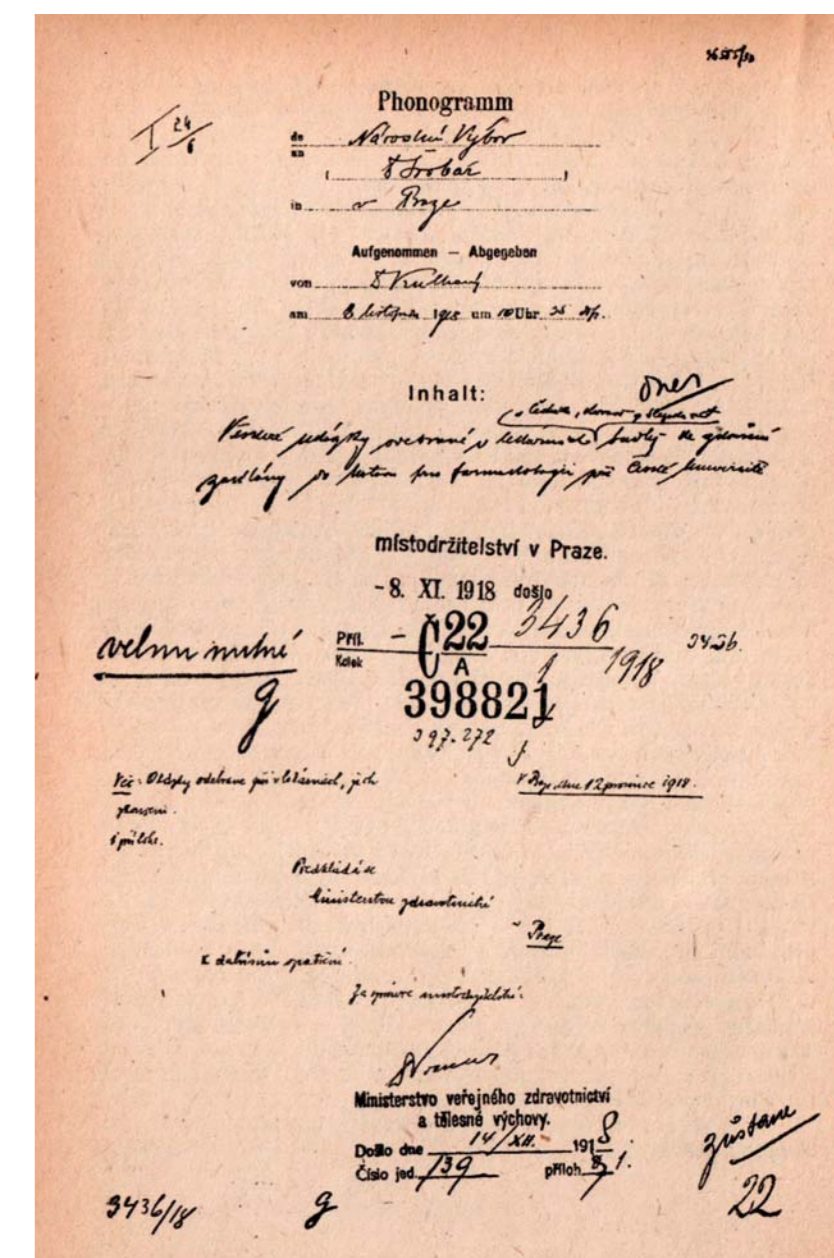 I 24/6
Phonogramm
de
an Národní Výbor
( Dr Šrobár )
in v Praze
Aufgenommen — Abgegeben
von
am 8 listopadu 1918 um 10 Uhr 35
Inhalt:
dnes
Veškeré odebrané v lékárnách buďtež ke zkoumání
zasílány do pro farmakologii při České universitě
místodržitelství v Praze.
-8. XI. 1918 došlo
Příl. - Č 22 3436
Kolek A 1 1918
3436.
velmi nutné
g
398821
397.272
Věc: Otázky odebrané při v lékárnách, jich
zkoušení.
1 příloha.
V Praze dne 12 prosince 1918.
Předkládá se
Ministerstvu zdravotnictví
v Praze
k dalšímu opatření.
Za správce místodržitelství:
Ministerstvo veřejného zdravotnictví
a tělesné výchovy.
Došlo dne 14/XII. 1918
Číslo jed. 139 příloh 1.
zůstane
22
3436/18
g